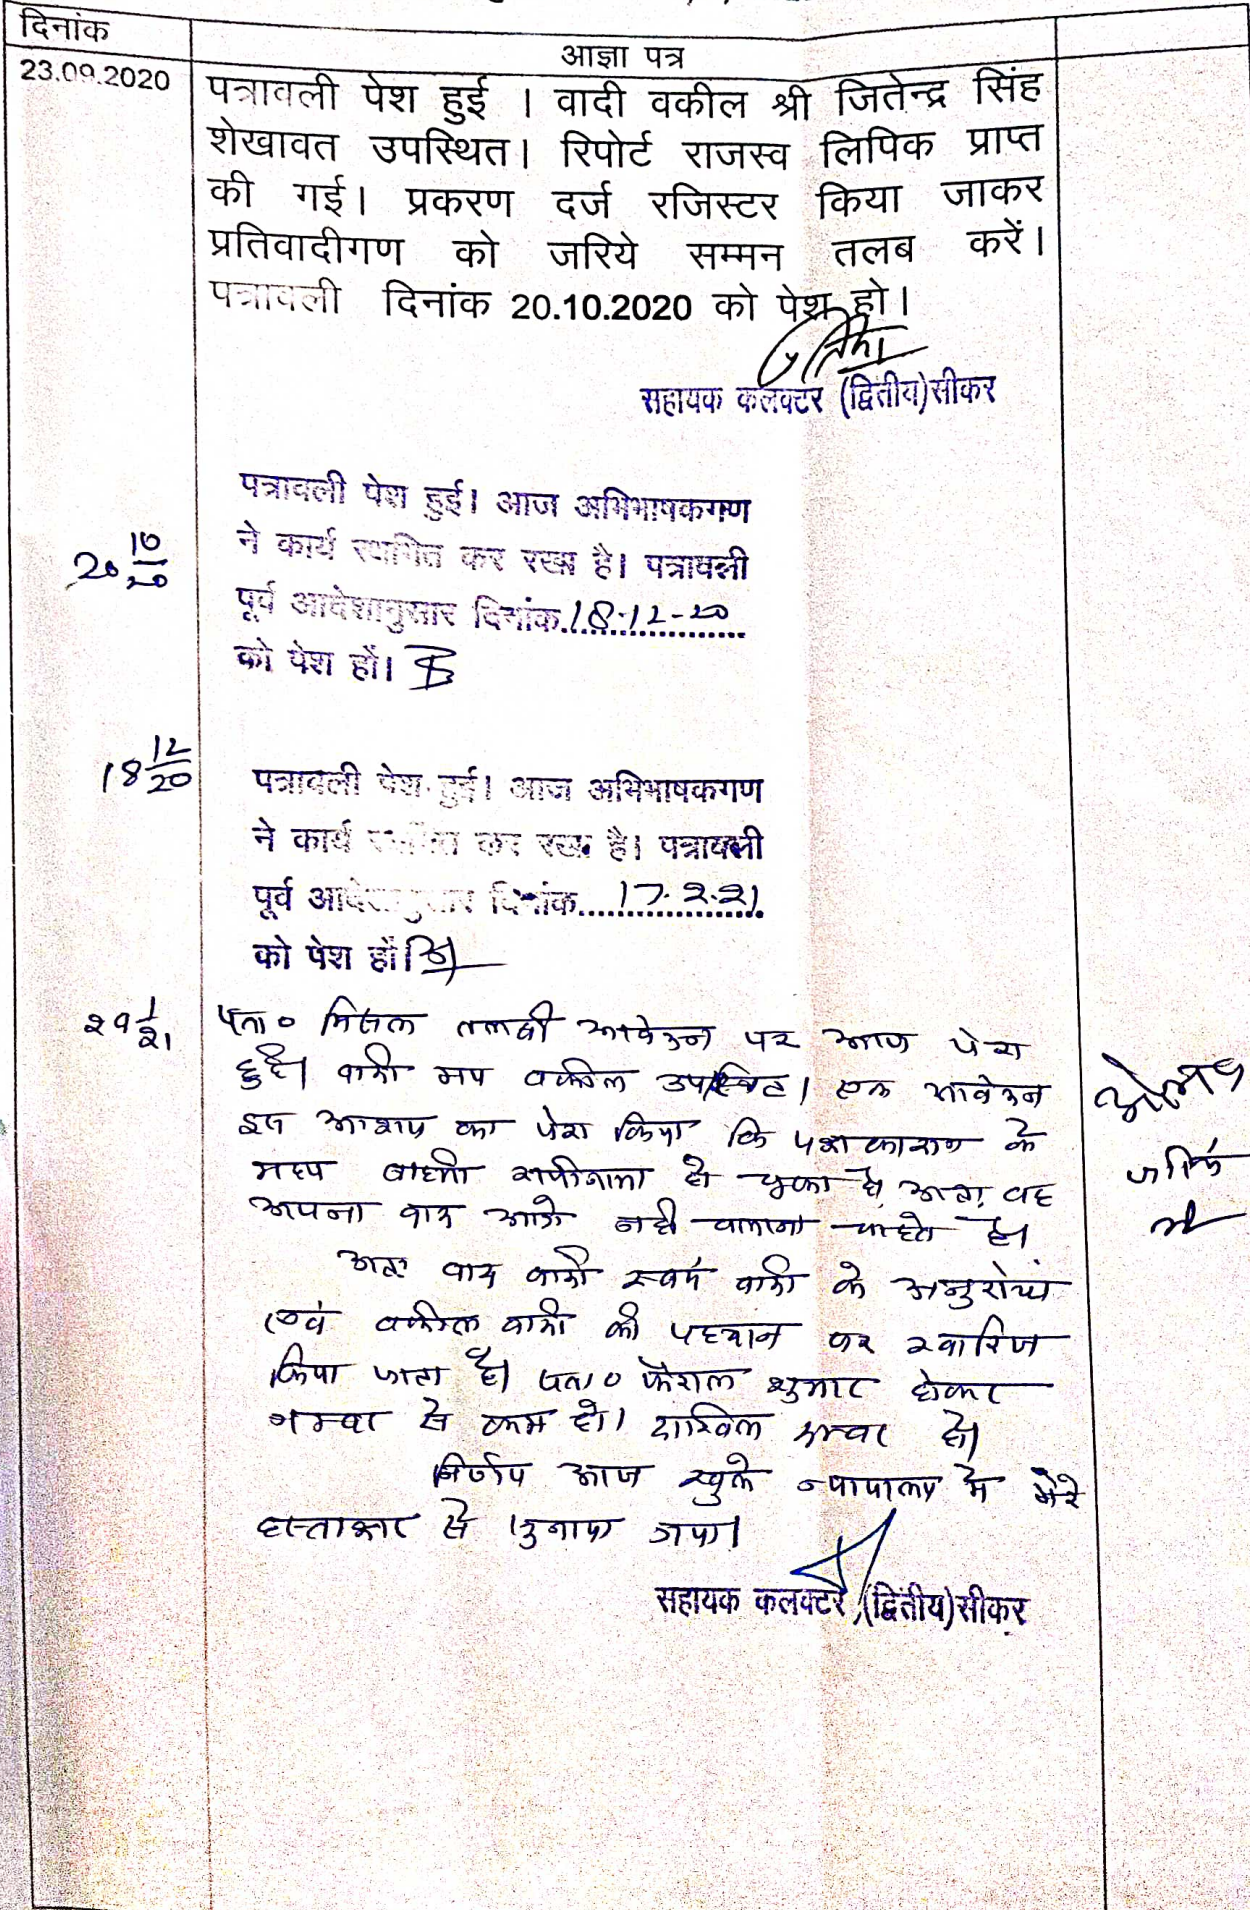 दिनांक
आज्ञा पत्र
23.09.2020
पत्रावली पेश हुई । वादी वकील श्री जितेन्द्र सिंह
शेखावत उपस्थित। रिपोर्ट राजस्व लिपिक प्राप्त
की गई। प्रकरण दर्ज रजिस्टर किया जाकर
प्रतिवादीगण को जरिये सम्मन तलब करें।
पत्रावली दिनांक 20.10.2020 को पेश हो।
सहायक कलक्टर (द्वितीय) सीकर
20 10/20
पत्रावली पेश हुई। आज अभिभाषकगण
ने कार्य स्थगित कर रखा है। पत्रावली
पूर्व आदेशानुसार दिनांक 18-12-20
को पेश हों।
18 12/20
पत्रावली पेश हुई। आज अभिभाषकगण
ने कार्य स्थगित कर रखा है। पत्रावली
पूर्व आदेशानुसार दिनांक 17.2.21
को पेश हों।
29 1/21
पत्रा० मिसल तलबी आवेदन पर आज पेश
हुई। वादी मय वकील उपस्थित। एक आवेदन
इस आशय का पेश किया कि पक्षकारान के
मध्य राजीनामा हो चुका है अतः वह
अपना वाद आगे नहीं चलाना चाहते है।
अतः वाद वादी स्वयं वादी के अनुरोध
एवं वकील वादी की पहचान पर खारिज
किया जाता है। पत्रा० फैसल शुमार होकर
नम्बर से कम हो। दाखिल दफ्तर हो।
निर्णय आज खुले न्यायालय में मेरे
हस्ताक्षर से सुनाया गया।
सहायक कलक्टर (द्वितीय) सीकर